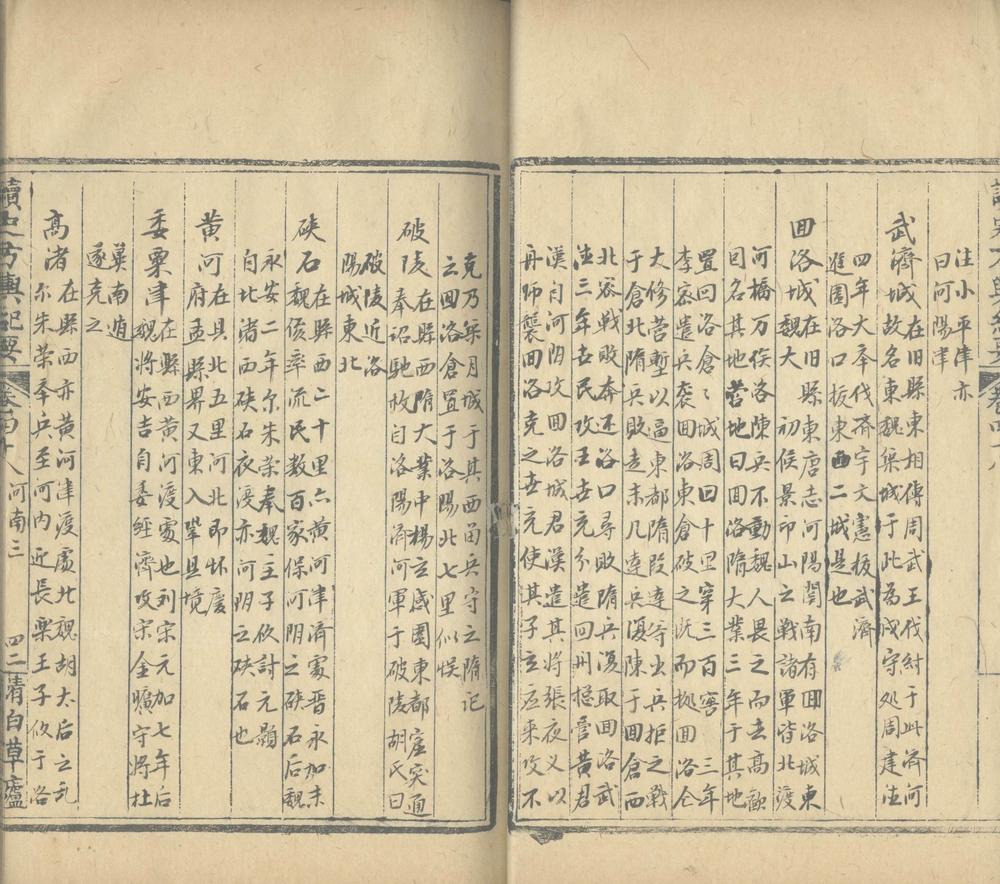 注小平津亦
曰河陽津
武濟城在旧縣東相傳周武王伐紂于此濟河
故名東魏築城于此為戍守処周建德
四年大夲伐齊宇文憲拔武濟
進圍洛口拔東西二城是也
回洛城在旧縣東唐志河陽關南有回洛城東
魏大 初侯景卬山之戰諸軍皆北渡
河橋万俟洛陳兵不動魏人畏之而去高歡
回名其地营地曰回洛隋大業三年于其地
置回洛倉〻城周回十里穿三百窖 三年
李密遣兵襲回洛東倉破之既而拠回洛仓
大修营塹以逼東都隋段達等出兵拒之戰
于倉北隋兵敗走未几達兵復陳于回倉西
北密戰敗奔还洛口尋敗隋兵復取回洛武
德三年世民攻王世充分遣回州總管黄君
漢自河阴攻回洛城君漢遣其將張夜义以
舟师襲回洛克之世充使其子玄应來攻不
克乃築月城于其西畄兵守之隋记
云回洛倉置于洛陽北七里似悮
破陵在縣西隋大業中楊玄感圍東都屈突通
奉诏馳救自洛陽濟河軍于破陵胡氏曰
破陵近洛
陽城東北
硖石在縣西二十里六黄河津濟處晋永加末
魏俊率流民数百家保河阴之硖石后魏
永安二年尔朱荣奉魏主子攸討元顥
自北渚西硖石夜渡亦河阴之硖石也
黄河在县北五里河北即怀慶
府孟縣界又東入鞏县境
委粟津在縣西黄河渡處也刘宋元加七年后
魏將安吉自委經濟攻宋金墉守將杜
冀南遁
遂克之
高渚在縣西亦黄河津渡處北魏胡太后之乱
尔朱荣举兵至河内迎長樂王子攸于洛
讀史方輿紀要 卷四十八河南三 四二 清白草廬